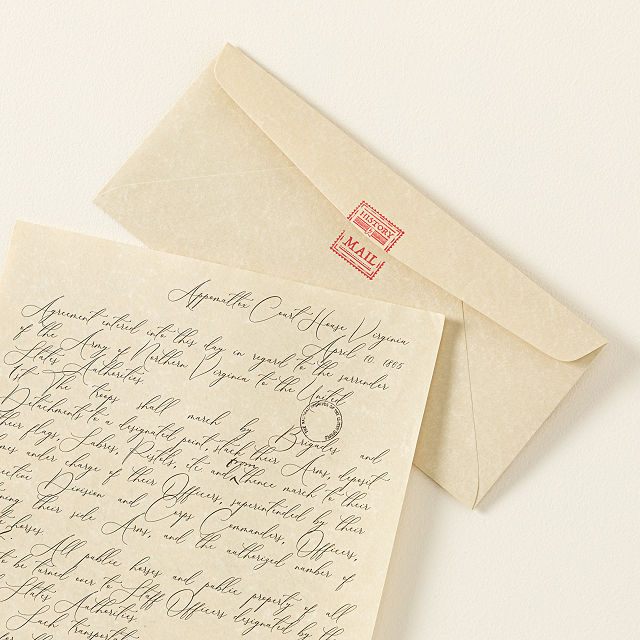 HISTORY
by
MAIL
Appomattox Court House Virginia
April 10. 1865
Agreement entered into this day in regard to the surrender
of the Army of Northern Virginia to the United
States Authorities.
1st The troops shall march by Brigades and
Detachments to a designated point, stack their Arms, deposit
their flags, Sabres, Pistols, etc. and
from
thence march to their
homes under charge of their Officers, superintended by their
Division and Corps Commanders, Officers,
their side Arms, and the authorized number of
horses.
All public horses and public property of all
to be turned over to Staff Officers designated by the
States Authorities.
Such